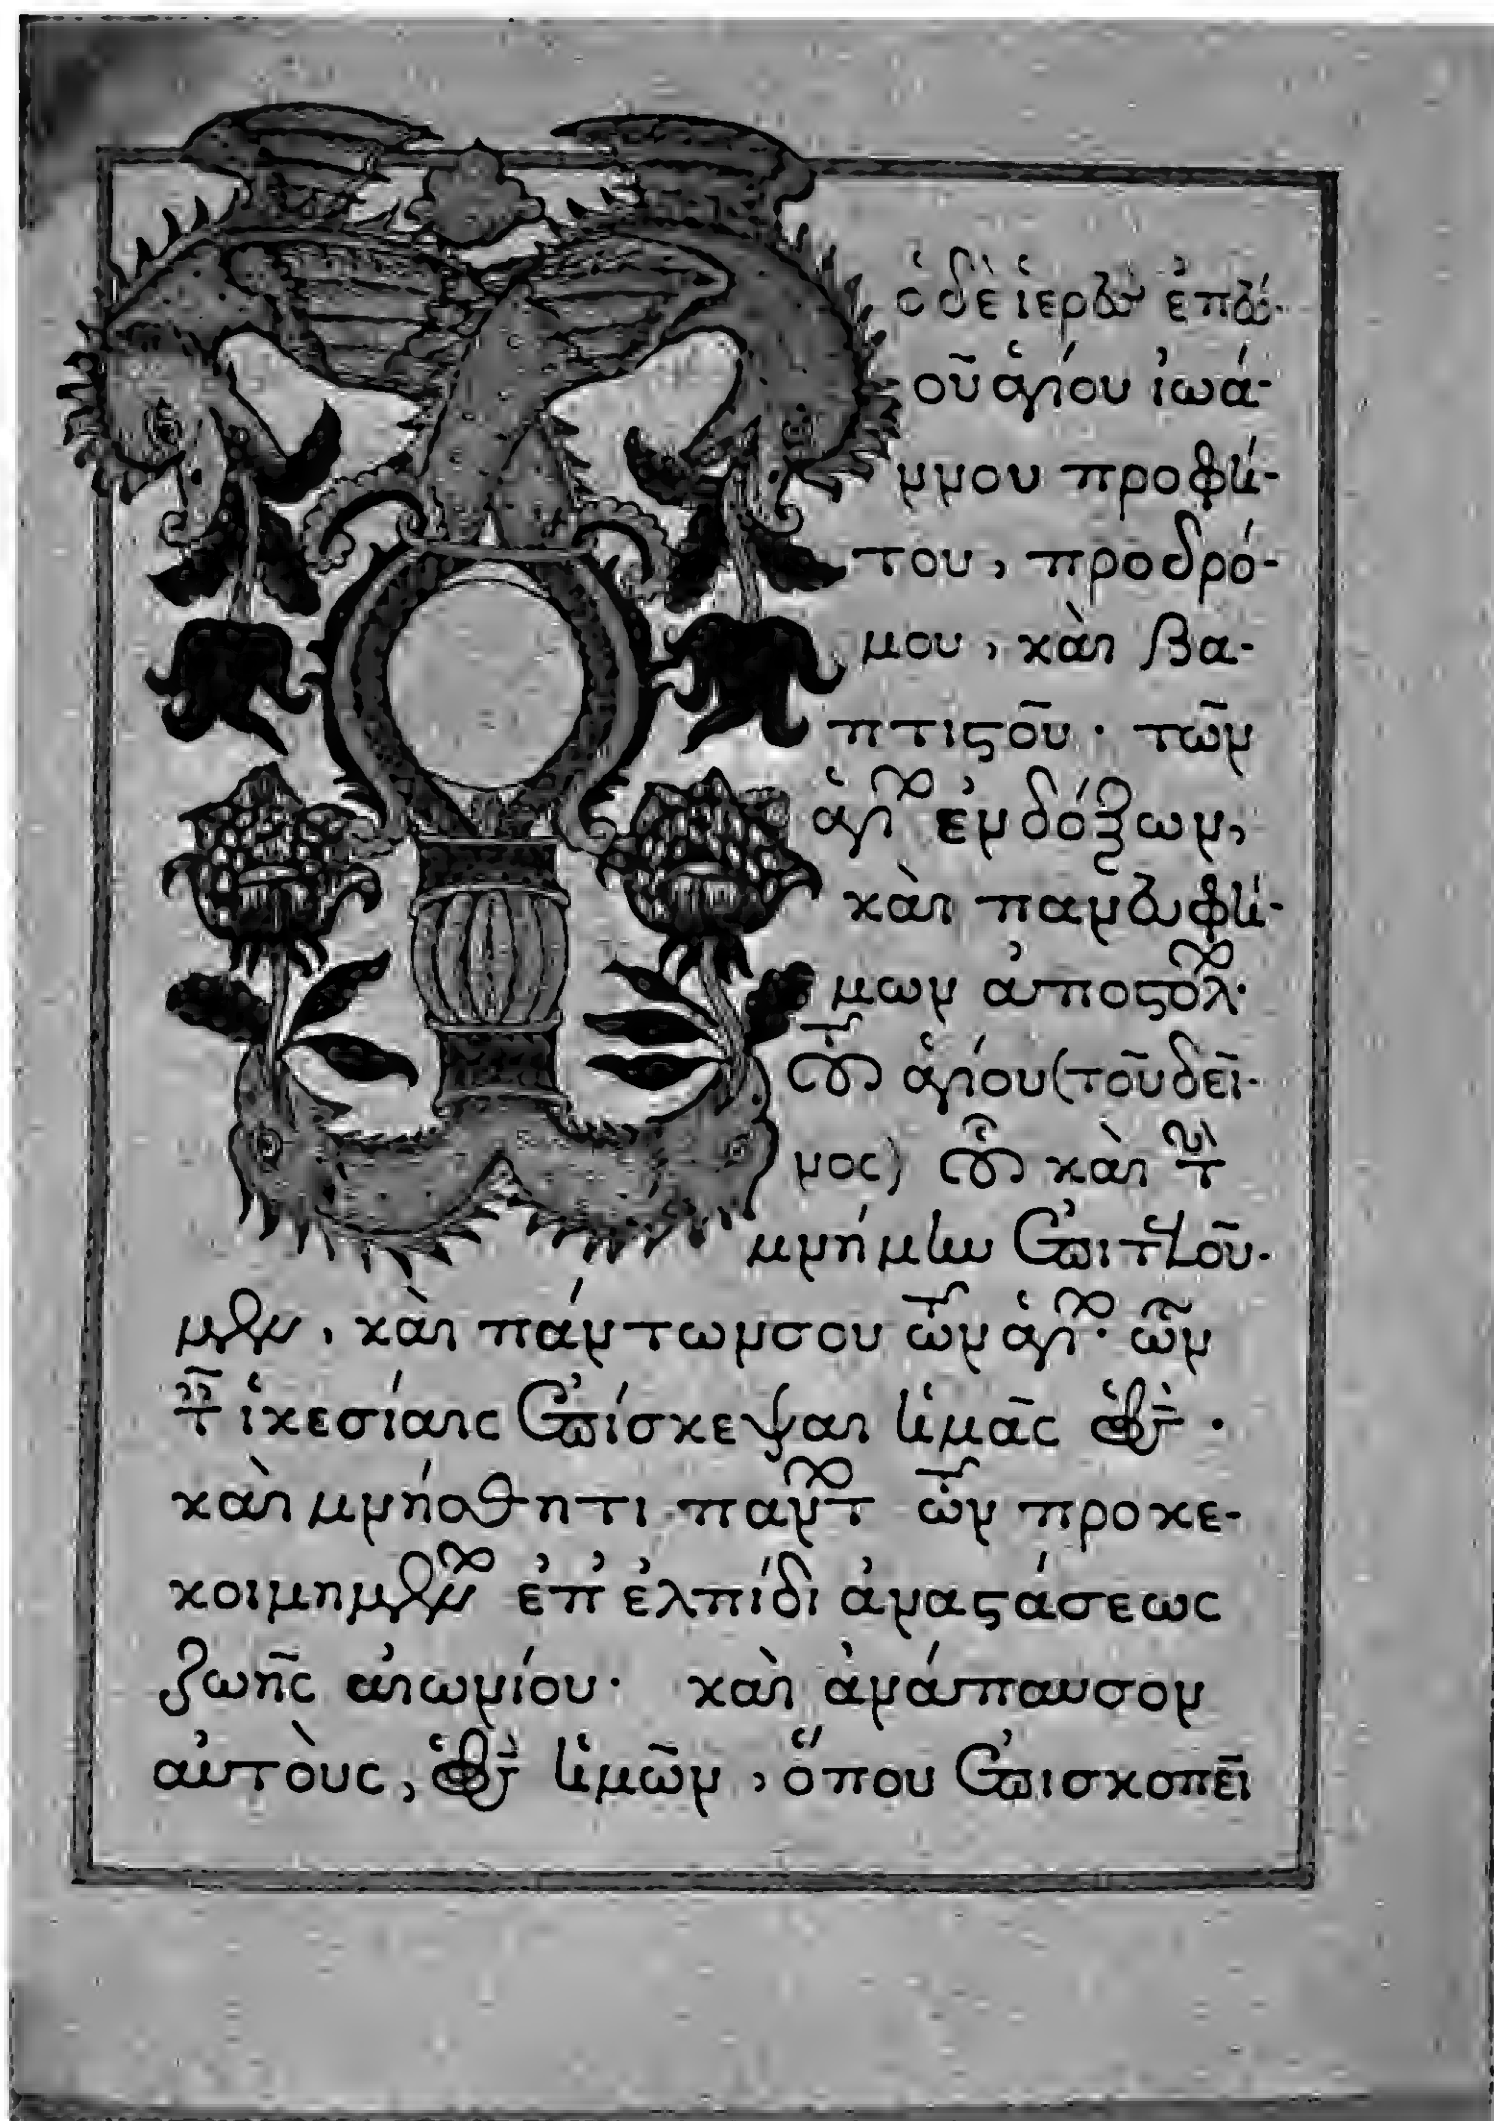 ὁ δὲ ἱερεὺς ἐπεύ-
οῦ ἁγίου ἰωά-
ννου προφή-
του, προδρό-
μου, καὶ βα-
πτιστοῦ· τῶν
ἁγίων ἐνδόξων,
καὶ πανευφή-
μων ἀποστόλων·
τοῦ ἁγίου (τοῦ δεῖ-
νος) οὗ καὶ τὴν
μνήμην ἐπιτελοῦ-
μεν, καὶ πάντων σου τῶν ἁγίων· ὧν
ταῖς ἱκεσίαις ἐπίσκεψαι ἡμᾶς ὁ θεὸς·
καὶ μνήσθητι πάντων τῶν προκε-
κοιμημένων ἐπ' ἐλπίδι ἀναστάσεως
ζωῆς αἰωνίου· καὶ ἀνάπαυσον
αὐτοὺς, ὁ θεὸς ἡμῶν, ὅπου ἐπισκοπεῖ